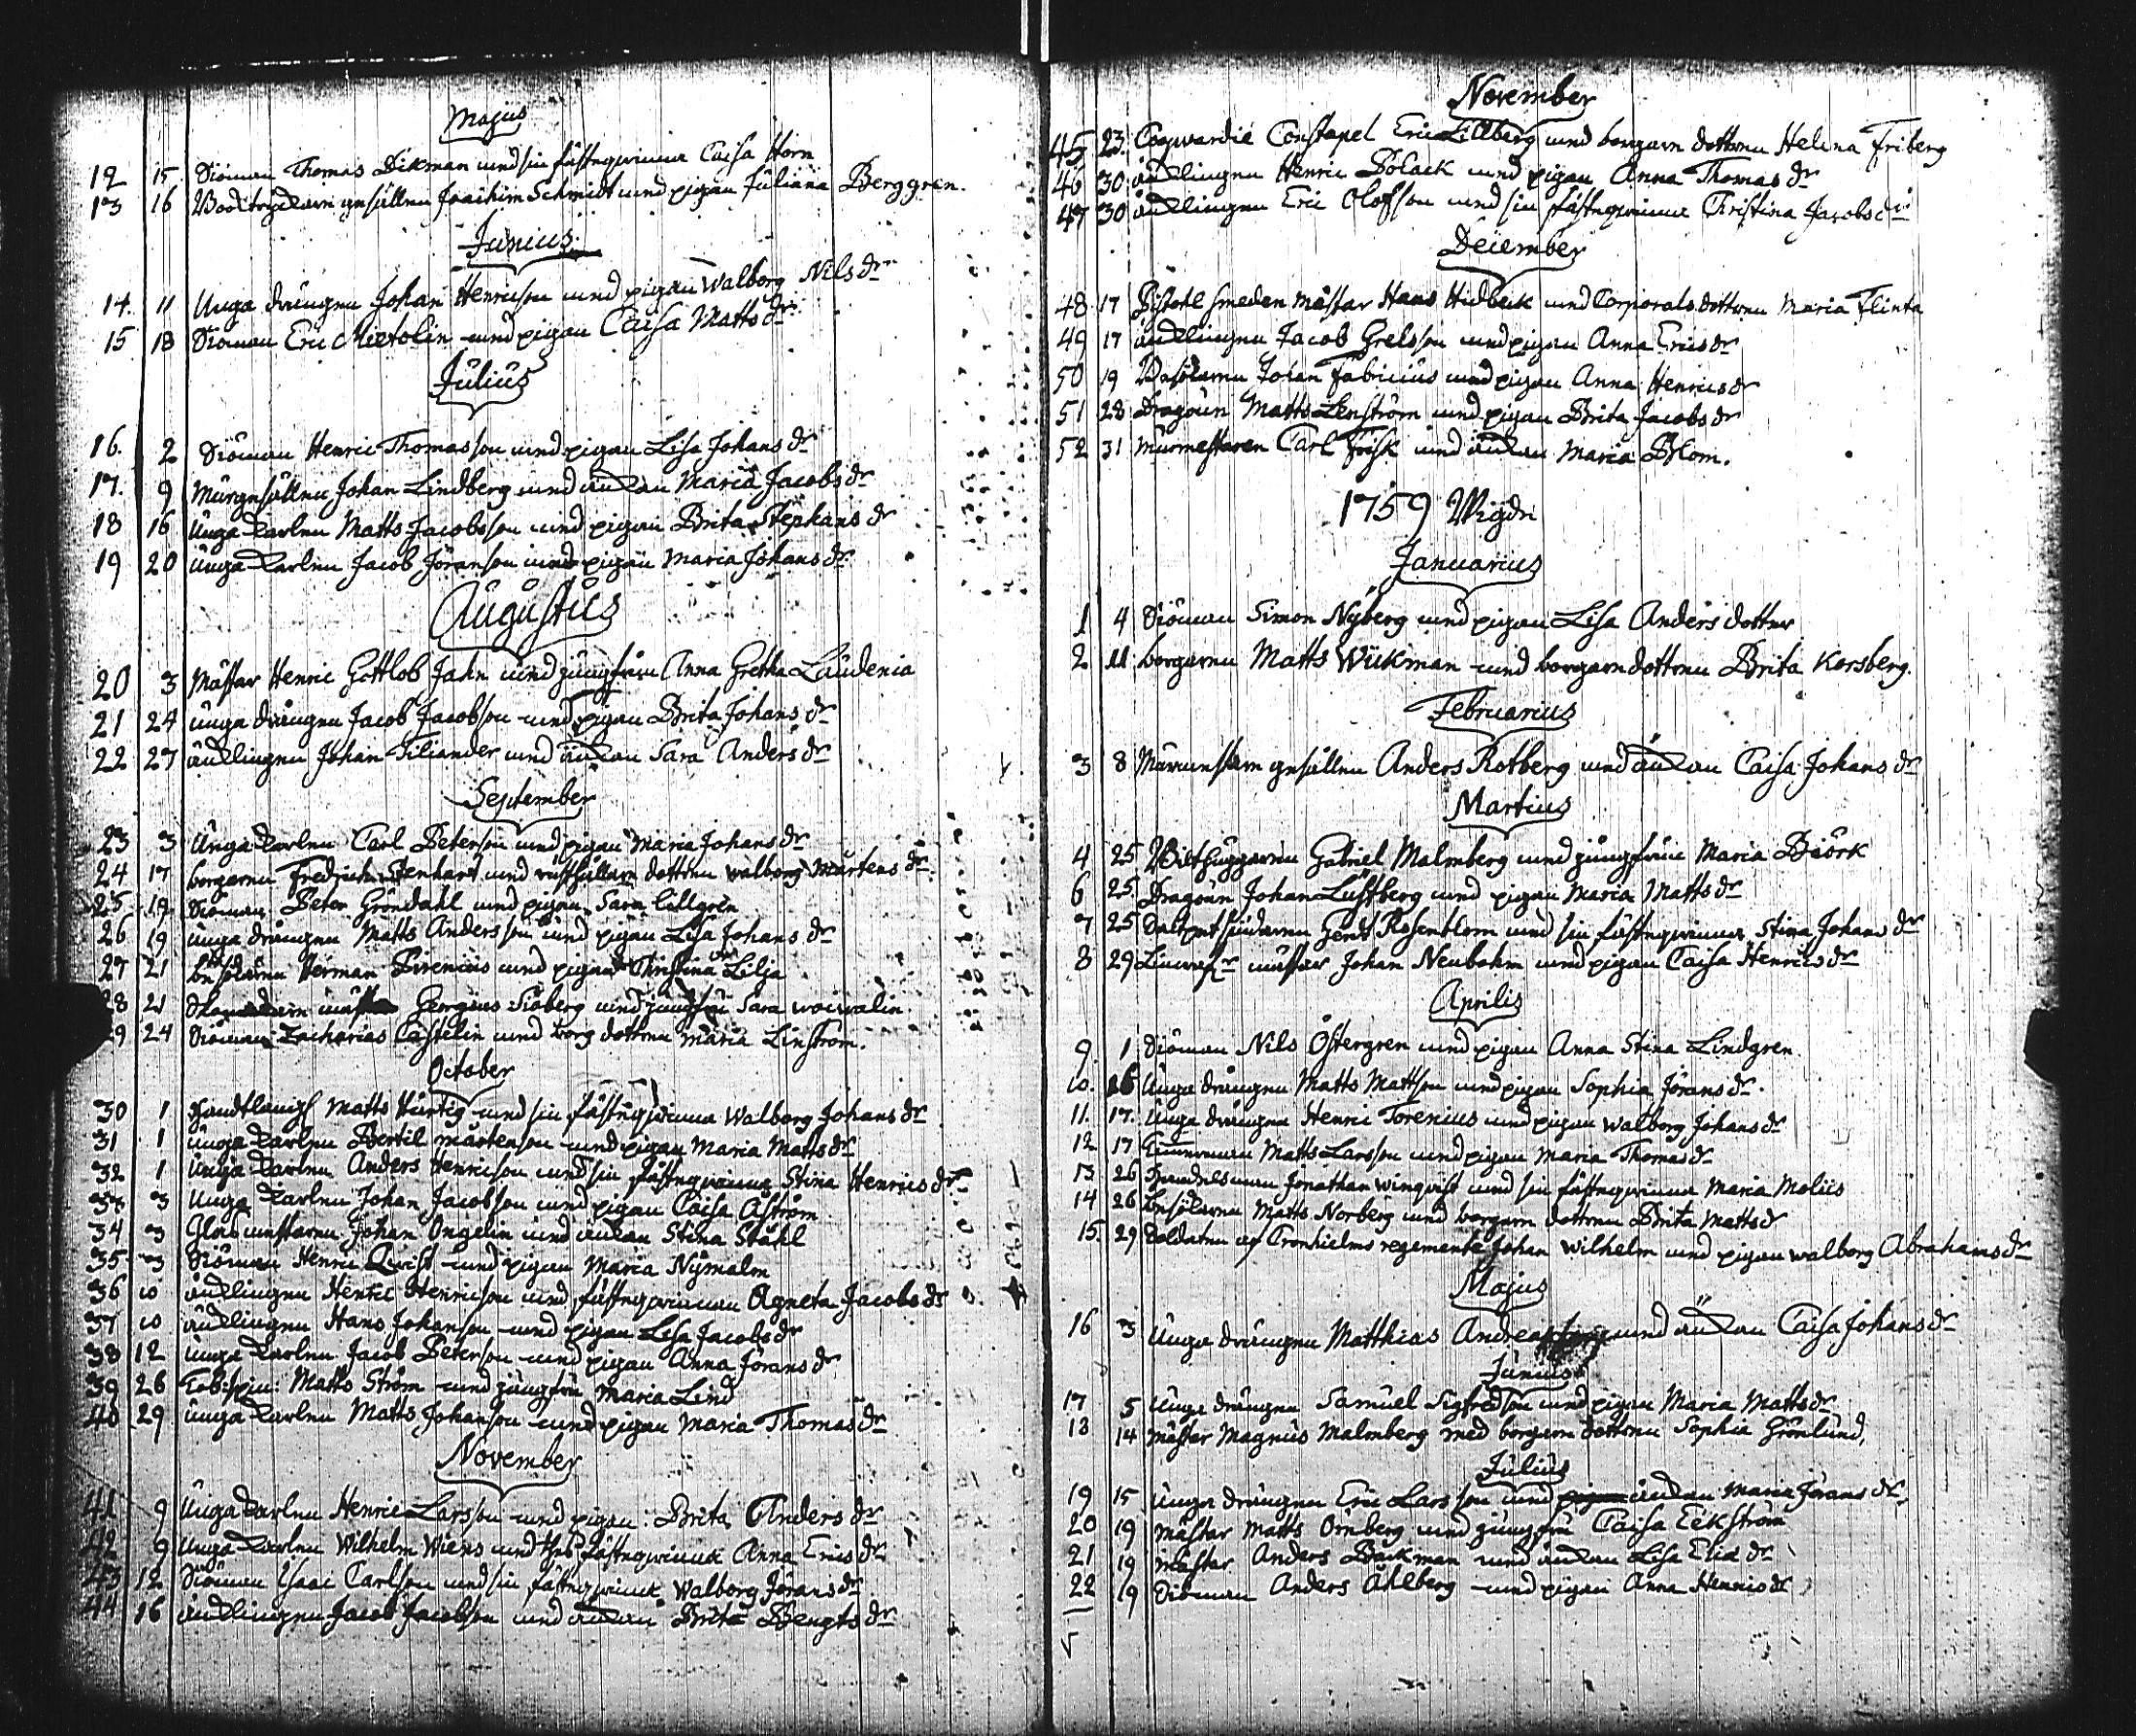 Majus
12 15 Siöman Thomas Dikman med sin fästeqvinna Caisa Horn
13 16 gesällen Joachim Schmidt med pigan Juliana Berggren.
Junius
14. 11 Unga drängen Johan Henricson med pigan Walborg Nils dr
15 18 Siöman Eric Mietolin med pigan Caisa Matts dr
Julius
16. 2 Siöman Henric Thomasson med pigan Lisa Johans dr
17. 9 Murgesällen Johan Lindberg med änkan Maria Jacobs dr
18 16 Unga karlen Matts Jacobsson med pigan Brita Stephans dr
19 20 Unga karlen Jacob Jöranson med pigan Maria Johans dr
Augustus
20 3 Mästar Henric Gottlob Jahn med jungfrun Anna Gretha Laudenia
21 24 Unga drängen Jacob Jacobson med pigan Brita Johans dr
22 27 änklingen Johan Tiliander med änkan Sara Anders dr
September
23 3 Unga karlen Carl Peterson med pigan Maria Johans dr
24 17 borgaren Fredrich Stenhart med rusthållare dottren Walborg Mårtens dr
25 17 Siöman Peter Gröndahl med pigan Sara Cillgren
26 19 Unga drängen Matts Andersson med pigan Lisa Johans dr
27 21 besökaren Herman Pirenius med pigan Christina Lilja
28 21 Georgius Siöberg med jungfru Sara Woiwalin
29 24 Siöman Zacharias Castelin med borg dottren Maria Linström.
October
30 1 Handtlang Matts Hurtig med sin fästeqvinna Walborg Johans dr
31 1 Unga karlen Bertil Mårtenson med pigan Maria Matts dr
32 1 Unga karlen Anders Henricson med sin fästeqvinna Stina Henrics dr
33 3 Unga karlen Johan Jacobson med pigan Caisa Åström
34 3 Glasmästaren Johan Ongelin med änkan Stina Ståhl
35 3 Siöman Henric Qwist med pigan Maria Nymalm
36 10 änklingen Henric Henricson med fästeqvinnan Agneta Jacobs dr
37 10 änklingen Hans Johanson med pigan Lisa Jacobs dr
38 12 Unga karlen Jacob Peterson med pigan Anna Jörans dr
39 26 Tob:spin: Matts Ström med jungfru Maria Lind
40 29 Unga karlen Matts Johanson med pigan Maria Thomas dr
November
41 9 Unga karlen Henric Larsson med pigan Brita Anders dr
42 9 Unga karlen Wilhelm Wiens med fästeqvinna Anna Erics dr
43 12 Siöman Isaac Carlson med sin fästeqvinna Walborg Jörans dr
44 16 änklingen Jacob Jacobson med änkan Brita Bengts dr
November
45 23. Coopvardie Constapel Eric Lillberg med borgare dottren Helena Friberg
46 30 änklingen Henric Polack med pigan Anna Thomas dr
47 30 änklingen Eric Olofson med sin fästeqvinna Christina Jacobs dr
December
48 17 Pistohlsmeden mästar Hans Hidbeck med Corporals dottren Maria Flinta
49 17 änklingen Jacob Grelsson med pigan Anna Erics dr
50 19 Besökaren Johan Fabricius med pigan Anna Henrics dr
51 28 Dragoun Matts Lenström med pigan Brita Jacobs dr
52 31 Murmestaren Carl Frisk med änkan Maria Blom.
1759 Wigde
Januarius
1 4 Siöman Simon Nyberg med pigan Lisa Anders dotter
2 11 borgaren Matts Wickman med borgare dottren Brita Korsberg.
Februarius
3 8 gesällen Anders Rotberg med änkan Caisa Johans dr
Martius
4 25 Bilthuggaren Gabriel Malmberg med jungfrun Maria Biörk
6 25 Dragoun Johan Lustberg med pigan Maria Matts dr
7 25 Saltpetsiudaren Gert Rosenblom med sin fästeqvinna Stina Johans dr
8 29 mästar Johan Neubohm med pigan Caisa Henrics dr
Aprilis
9. 1 Siöman Nils Östergren med pigan Anna Stina Lindgren
10. 16 Unga drängen Matts Mattson med pigan Sophia Jörans dr.
11. 17. Unga drängen Henric Torenius med pigan Walborg Johans dr
12 17 Timmerman Matts Larsson med pigan Maria Thomas dr
13 26 Handelsman Jonathan Winqvist med sin fästeqvinna Maria Moliis
14 26 besökaren Matts Norberg med borgare dottren Brita Matts dr
15. 29 Soldaten af Cronhielms regemente Johan Wilhelm med pigan Walborg Abrahams dr
Majus
16 3 Unga drängen Matthias med änkan Caisa Johans dr
Junius
17 5 Unga drängen Samuel Sigfredson med pigan Maria Matts dr
18 14 Mästar Magnus Malmberg med borgare dottren Sophia Grönlund,
Julius
19 15 Unga drängen Eric Larsson med pigan änkan Maria Jörans dr
20 19 Mästar Matts Örnberg med jungfru Caisa Eekström
21 19 Mästar Anders Backman med änkan Lisa Eliæ dr
22 19 Siöman Anders Åhlberg med pigan Anna Henrics dr